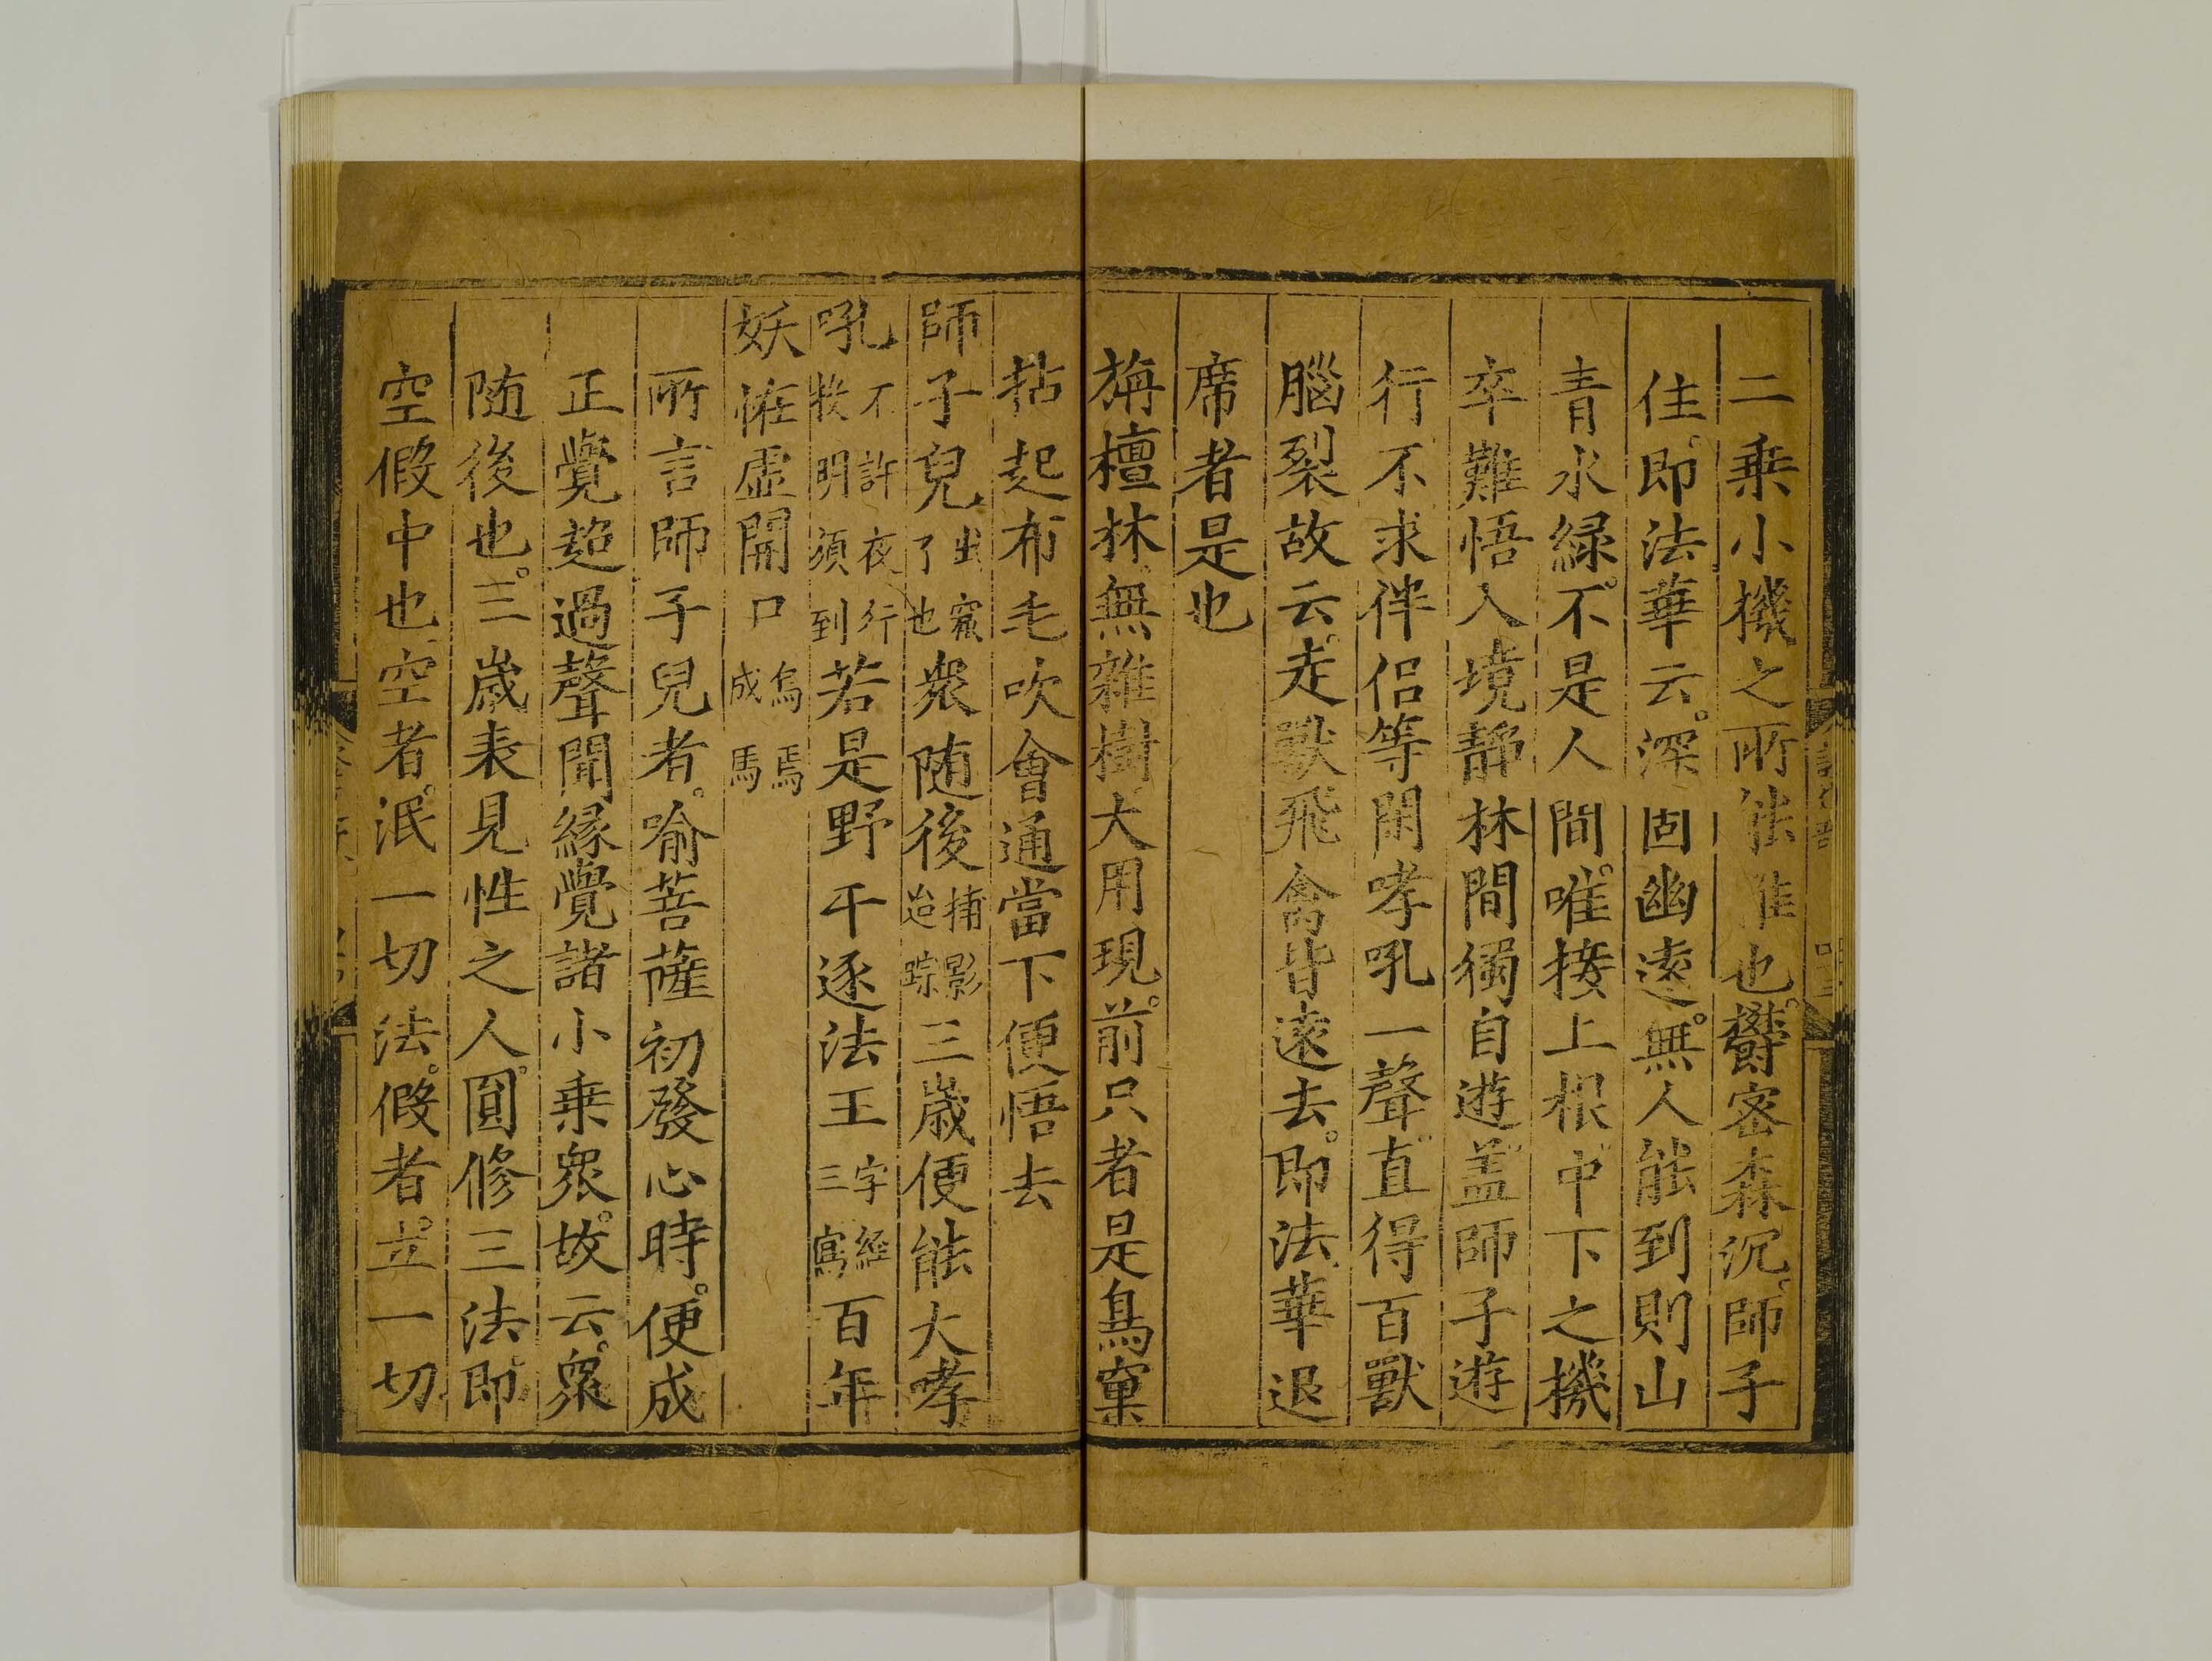 二乗小機之所能唯也。欝密森沉。師子
住。即法華云。深固幽遠。無人能到則山
青水緑。不是人間。唯接上根。中下之機
卒難悟入境静林間獨自遊。盖師子遊
行不求伴侣等閑哮吼一聲。直得百獸
腦裂故云。走獸飛禽皆遠去。即法華退
席者是也
旃檀林。無雜樹。大用現。前只者是鳥窠
拈起布毛吹會通當下便悟去
師子兒出窟了也衆随後捕影迨踪三歳便能大哮
吼不許夜行投明須到若是野干逐法王字經三寫百年
妖恠虚開口烏焉成馬
所言師子兒者。喻菩薩初發心時。便成
正覺超過聲聞緣覺諸小乗衆。故云。衆
随後也。三歳表見性之人。圓修三法。即
空假中也。空者。泯一切法。假者。立一切